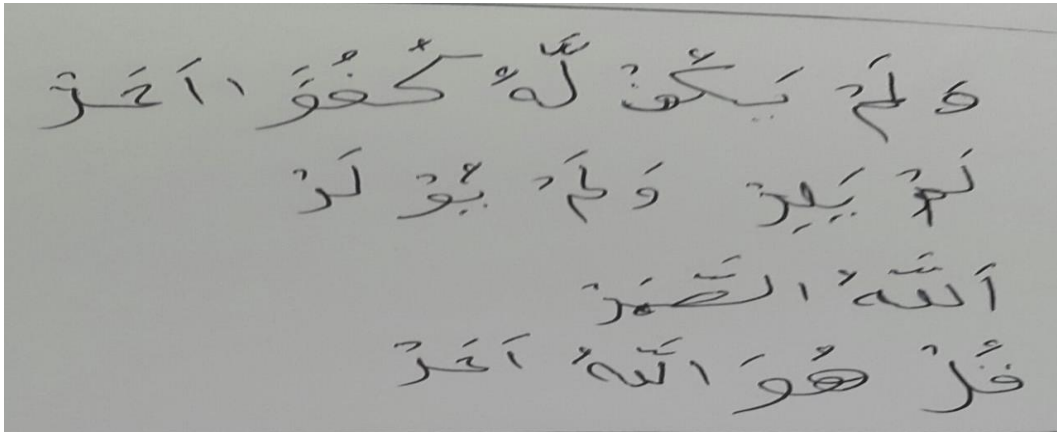 وَ لَمْ يَكُنْ لَّهُ كُفُوَ ا اَحَدْ
لَمْ يَلِدْ وَ لَمْ يُوْ لَدْ
اَللَّهُ الصَّمَدْ
قُلْ هُوَ اللَّهُ اَحَدْ